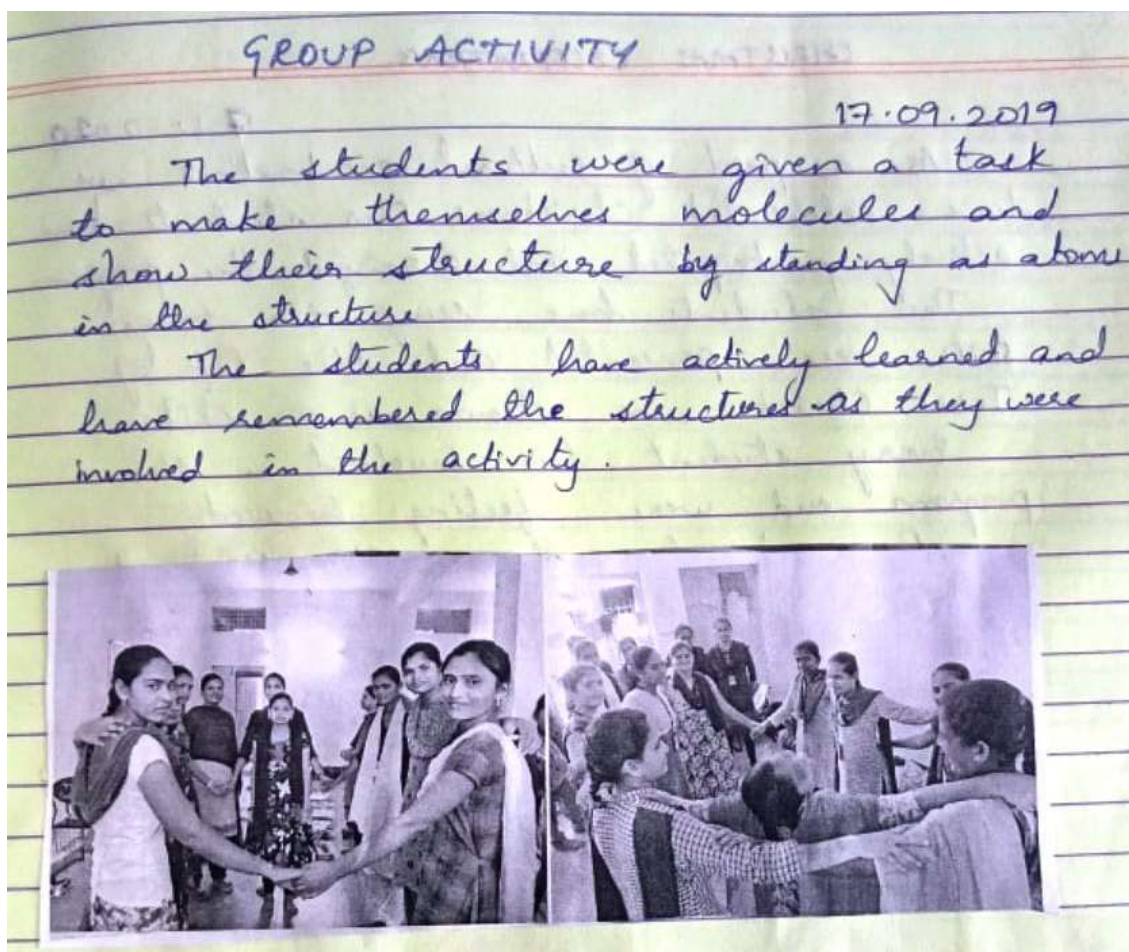 GROUP ACTIVITY
17.09.2019
The students were given a task
to make themselves molecules and
show their structure by standing as atoms
in the structure
The students have actively learned and
have remembered the structures as they were
involved in the activity.